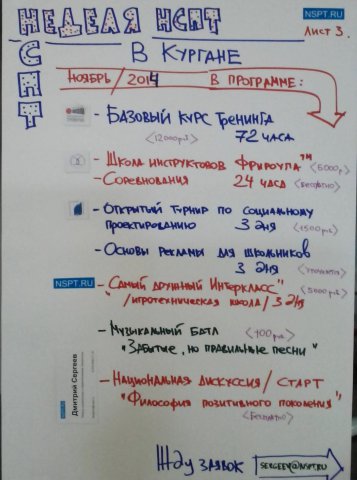 НЕДЕЛЯ НСПТ
NSPT.RU
ЛИСТ 3.
С
П
Т
В КУРГАНЕ
НОЯБРЬ /2014 В ПРОГРАММЕ:
- БАЗОВЫЙ КУРС ТРЕНИНГА
<12000руб> 72 ЧАСА
- ШКОЛА ИНСТРУКТОРОВ ФРИРОУПА™ <6000р>
- СОРЕВНОВАНИЯ 24 ЧАСА <БЕСПЛАТНО>
- ОТКРЫТЫЙ ТУРНИР ПО СОЦИАЛЬНОМУ
ПРОЕКТИРОВАНИЮ 3 ДНЯ <1500руб>
- ОСНОВЫ РЕКЛАМЫ ДЛЯ ШКОЛЬНИКОВ
3 ДНЯ
NSPT.RU
- "САМЫЙ ДРУЖНЫЙ ИНТЕРКЛАСС" <5000руб>
/ИГРОТЕХНИЧЕСКАЯ ШКОЛА/ 3 ДНЯ
- МУЗЫКАЛЬНЫЙ БАТЛ <400руб>
"ЗАБЫТЫЕ, НО ПРАВИЛЬНЫЕ ПЕСНИ"
Дмитрий Сергеев
- НАЦИОНАЛЬНАЯ ДИСКУССИЯ/ СТАРТ
"ФИЛОСОФИЯ ПОЗИТИВНОГО ПОКОЛЕНИЯ"
<БЕСПЛАТНО>
ЖДУ ЗАЯВОК SERGEEV@NSPT.RU